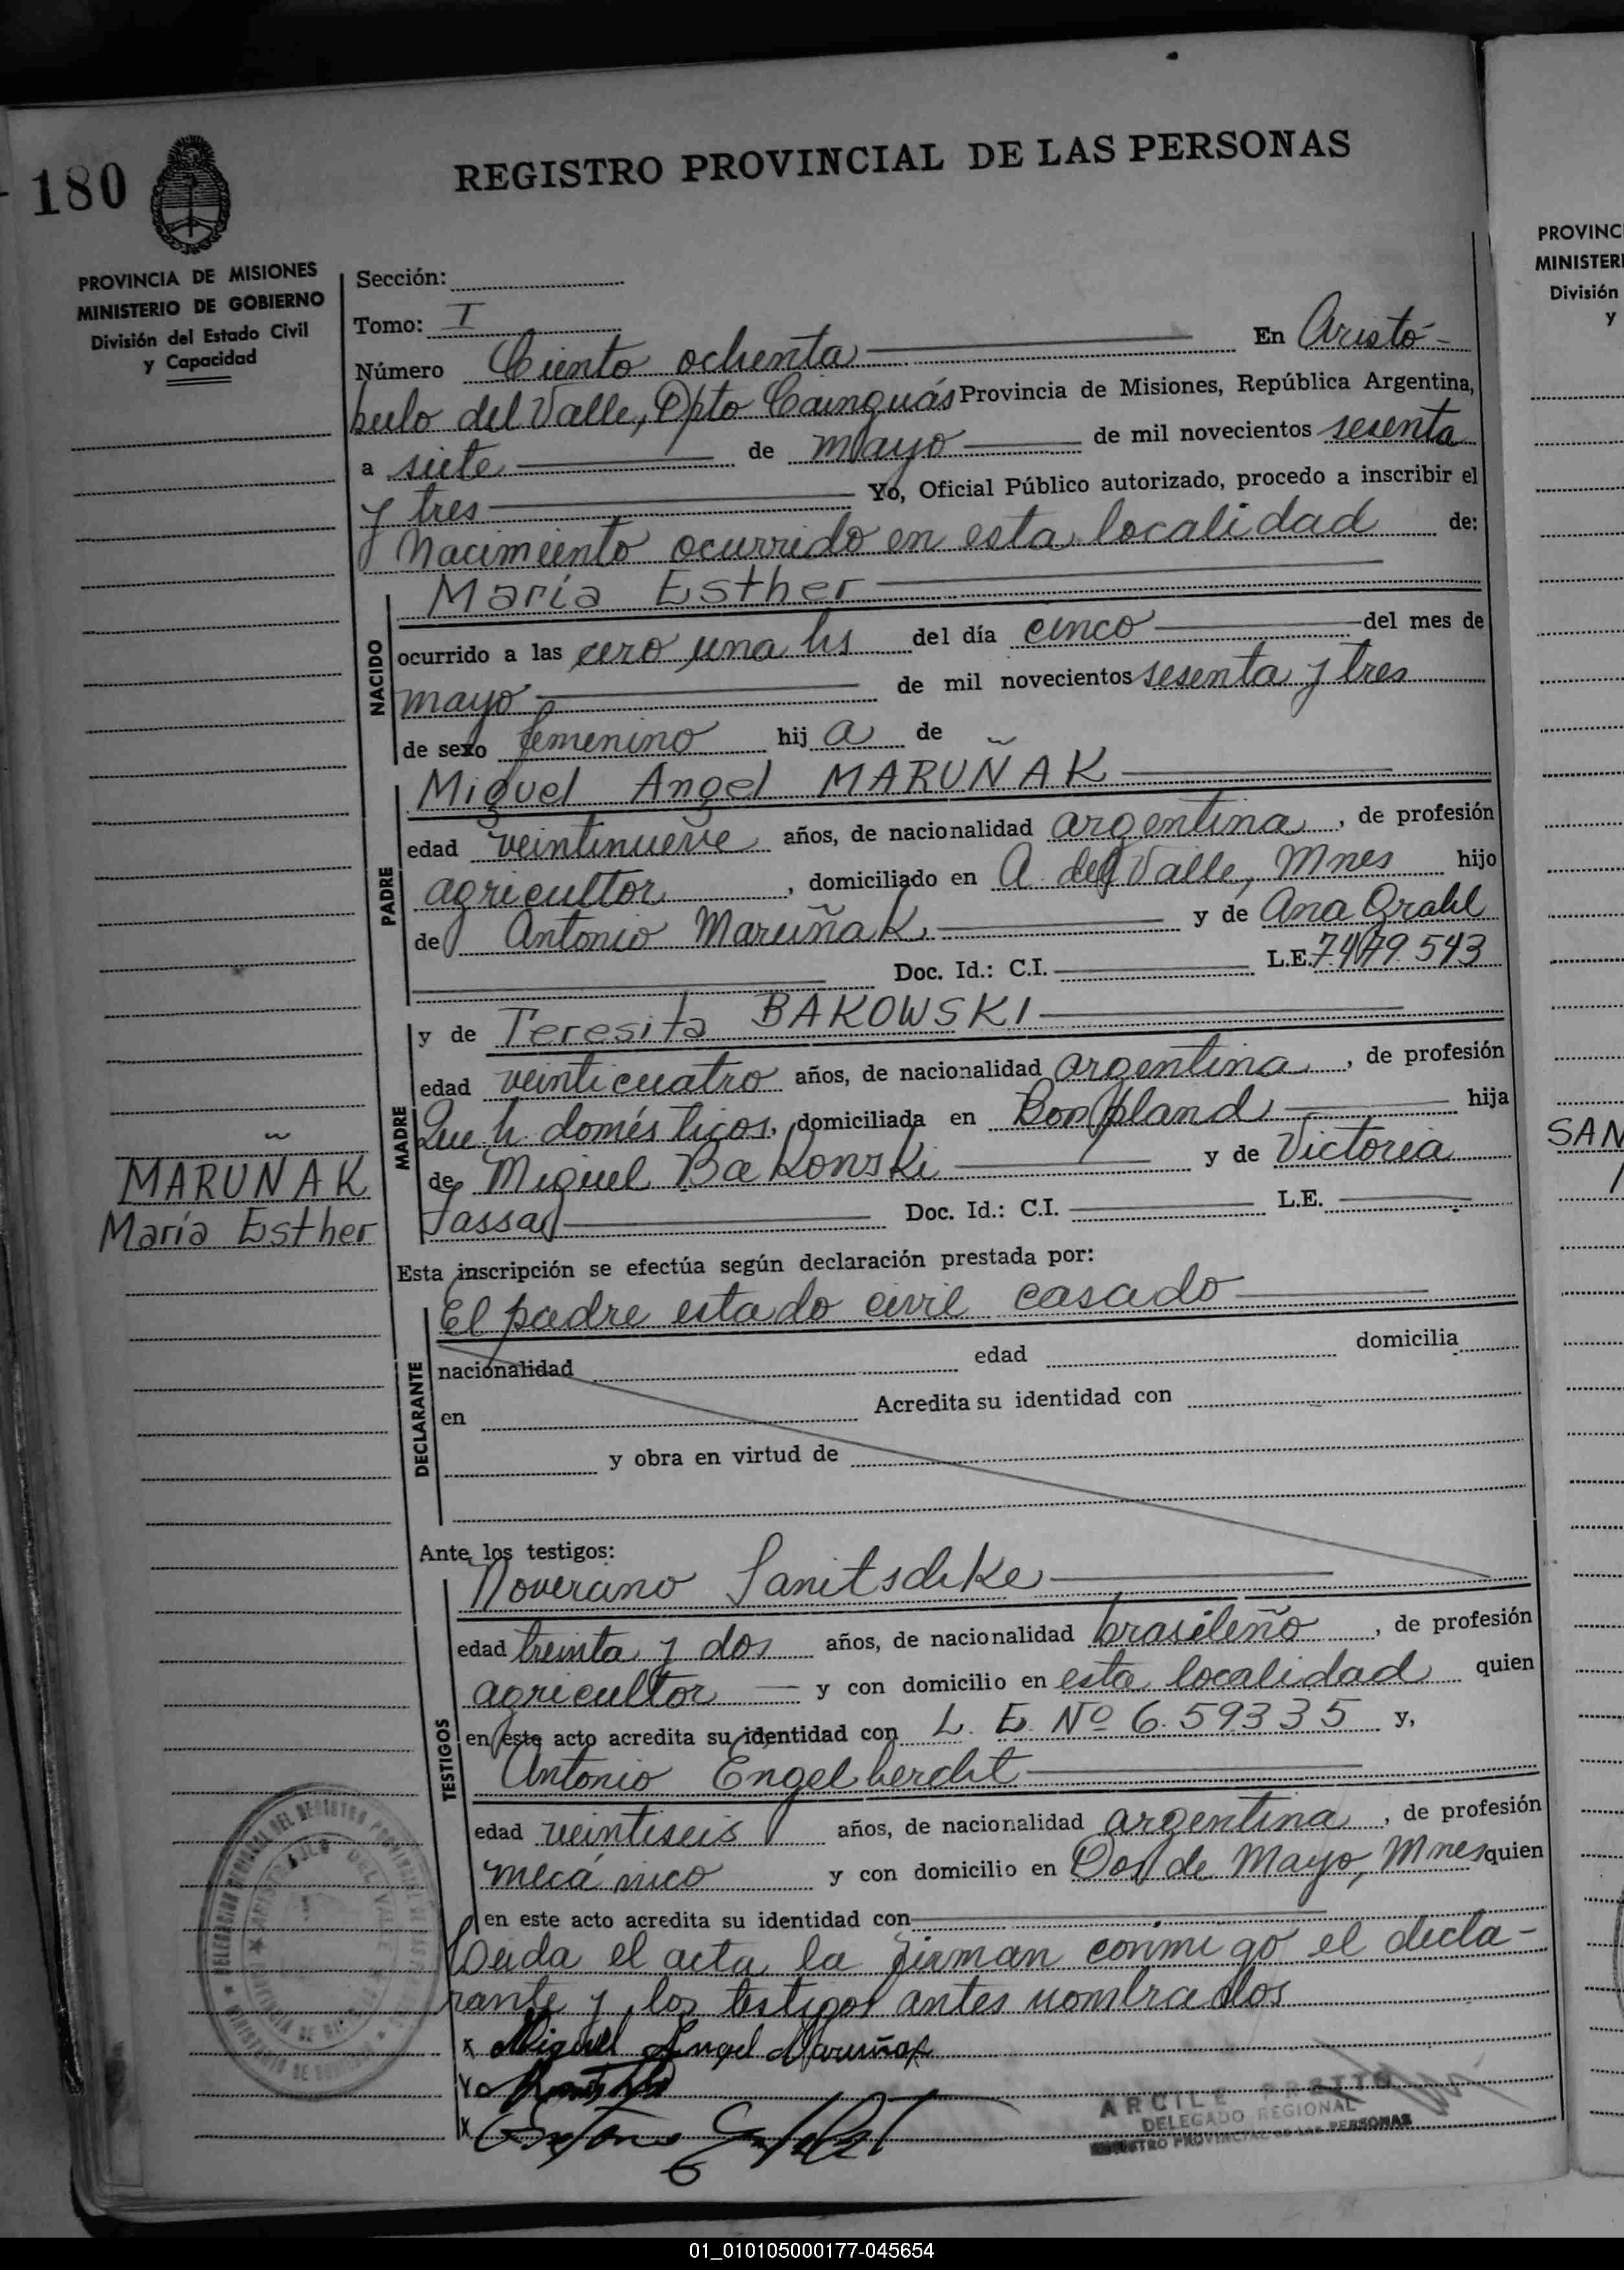 180
REGISTRO PROVINCIAL DE LAS PERSONAS
PROVINCIA DE MISIONES
MINISTERIO DE GOBIERNO
División del Estado Civil
y Capacidad
Sección:
Tomo: I
Número Ciento ochenta En Aristó-
bulo del Valle, Dpto Cainguás Provincia de Misiones, República Argentina,
a siete de mayo de mil novecientos sesenta
y tres Yo, Oficial Público autorizado, procedo a inscribir el
Nacimiento ocurrido en esta localidad de:
NACIDO
María Esther
ocurrido a las cero una hs del día cinco del mes de
mayo de mil novecientos sesenta y tres
de sexo femenino hij a de
PADRE
Miguel Angel MARUÑAK
edad veintinueve años, de nacionalidad argentina, de profesión
agricultor, domiciliado en A. del Valle, Mnes hijo
de Antonio Maruñak y de Ana Grahl
Doc. Id.: C.I. L.E. 7479.543
MADRE
y de Teresita BAKOWSKI
edad veinticuatro años, de nacionalidad argentina, de profesión
Que h. domésticos, domiciliada en Bonpland hija
de Miguel Bakonski y de Victoria
Doc. Id.: C.I. L.E.
MARUÑAK
María Esther
Esta inscripción se efectúa según declaración prestada por:
DECLARANTE
El padre estado civil casado
nacionalidad edad domicilia
en Acredita su identidad con
y obra en virtud de
Ante los testigos:
TESTIGOS
Noverano Sanitschke
edad treinta y dos años, de nacionalidad brasileño, de profesión
agricultor y con domicilio en esta localidad quien
en este acto acredita su identidad con L. E. Nº 6.59335 y,
Antonio Engelberdit
edad veintiseis años, de nacionalidad argentina, de profesión
mecánico y con domicilio en Dos de Mayo, Mnes quien
en este acto acredita su identidad con
Leida el acta la firman conmigo el decla-
rante y los testigos antes nombrados
x Miguel Angel Maruñak
x
x
DELEGADO REGIONAL
REGISTRO PROVINCIAL DE LAS PERSONAS
PROVINC
MINISTER
División
y
SAN
01_010105000177-045654